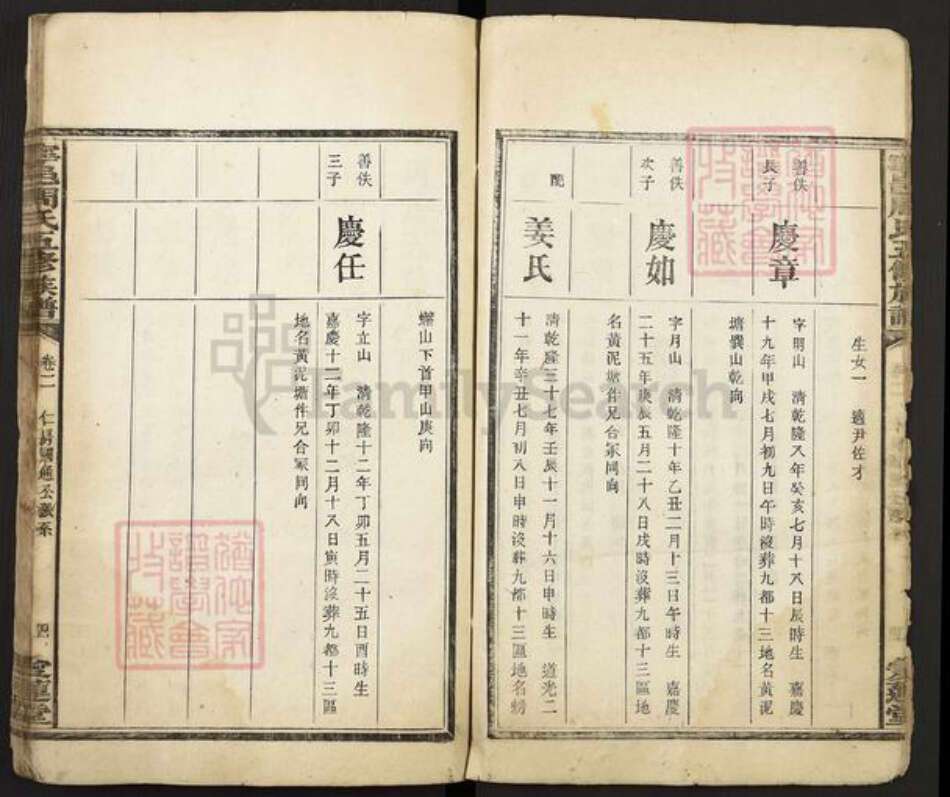 生女一 適尹佐才
善佚長子
慶章
字明山 清乾隆八年癸亥七月十八日辰時生 嘉慶
十九年甲戌七月初九日午時沒葬九都十三地名黃泥
塘巽山乾向
善佚次子
慶如
字月山 清乾隆十年乙丑二月十三日午時生 嘉慶
二十五年庚辰五月二十八日戌時沒葬九都十三區地
名黃泥塘件兄合冢同向
配
姜氏
清乾隆三十七年壬辰十一月十六日申時生 道光二
十一年辛丑七月初八日申時沒葬九都十三區地名螃
蠏山下首甲山庚向
善佚三子
慶任
字立山 清乾隆十二年丁卯五月二十五日酉時生
嘉慶十二年丁卯十二月十八日寅時沒葬九都十三區
地名黃泥塘件兄合冢同向
周氏五修族譜
卷二
愛蓮堂
FamilySearch